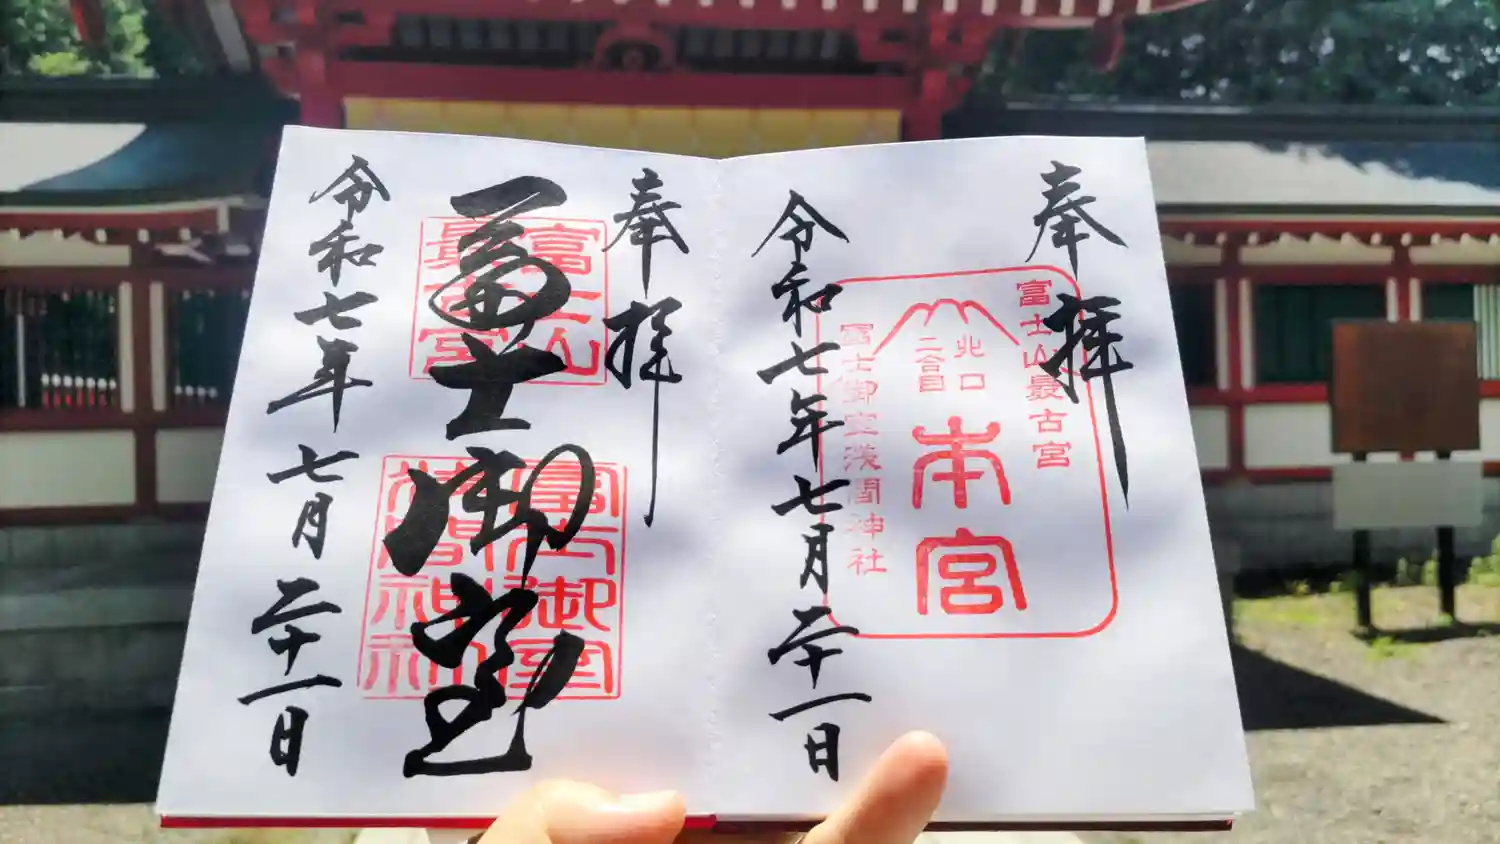 奉拝
富士山最古宮
北口
二合目
本宮
冨士御室浅間神社
令和七年七月二十一日
奉拝
富士山
最古宮
冨士御室
冨士御室
浅間神社
令和七年七月二十一日